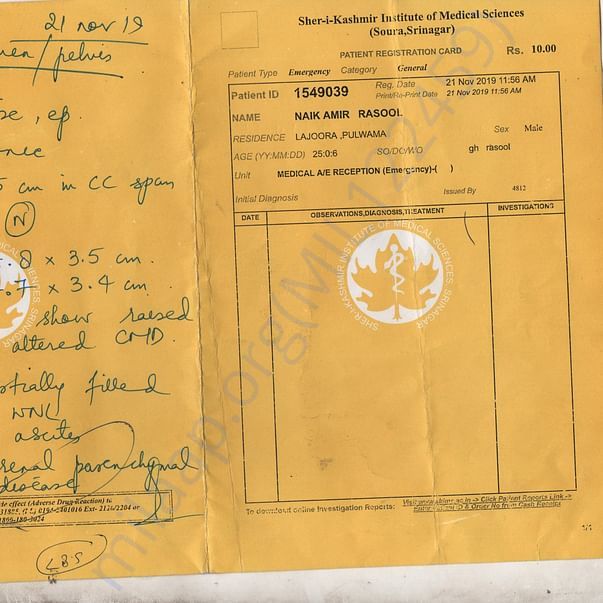 21 nov 19
/pelvis
, ep.
5 cm in CC span
N
.8 x 3.5 cm.
.7 x 3.4 cm.
show raised
altered CMD.
filled
WNL
ascites
renal parenchymal
disease
effect (Adverse Drug Reaction) to
0194-2401016 Ext- 2124/2204 or
1800-180-3024
LBS
Sher-i-Kashmir Institute of Medical Sciences
(Soura,Srinagar)
PATIENT REGISTRATION CARD Rs. 10.00
Patient Type Emergency Category General
Patient ID 1549039 Reg. Date 21 Nov 2019 11:56 AM
Print/Re-Print Date 21 Nov 2019 11:56 AM
NAME NAIK AMIR RASOOL
RESIDENCE LAJOORA ,PULWAMA Sex Male
AGE (YY:MM:DD) 25:0:6 SO/DO/WO gh rasool
Unit MEDICAL A/E RECEPTION (Emergency)-( )
Initial Diagnosis Issued By 4812
DATE OBSERVATIONS,DIAGNOSIS,TREATMENT INVESTIGATIONS
SHER-I-KASHMIR INSTITUTE OF MEDICAL SCIENCES, SRINAGAR
To download online Investigation Reports: -> Click Patient Reports Link ->
& Order No from Cash Receipt